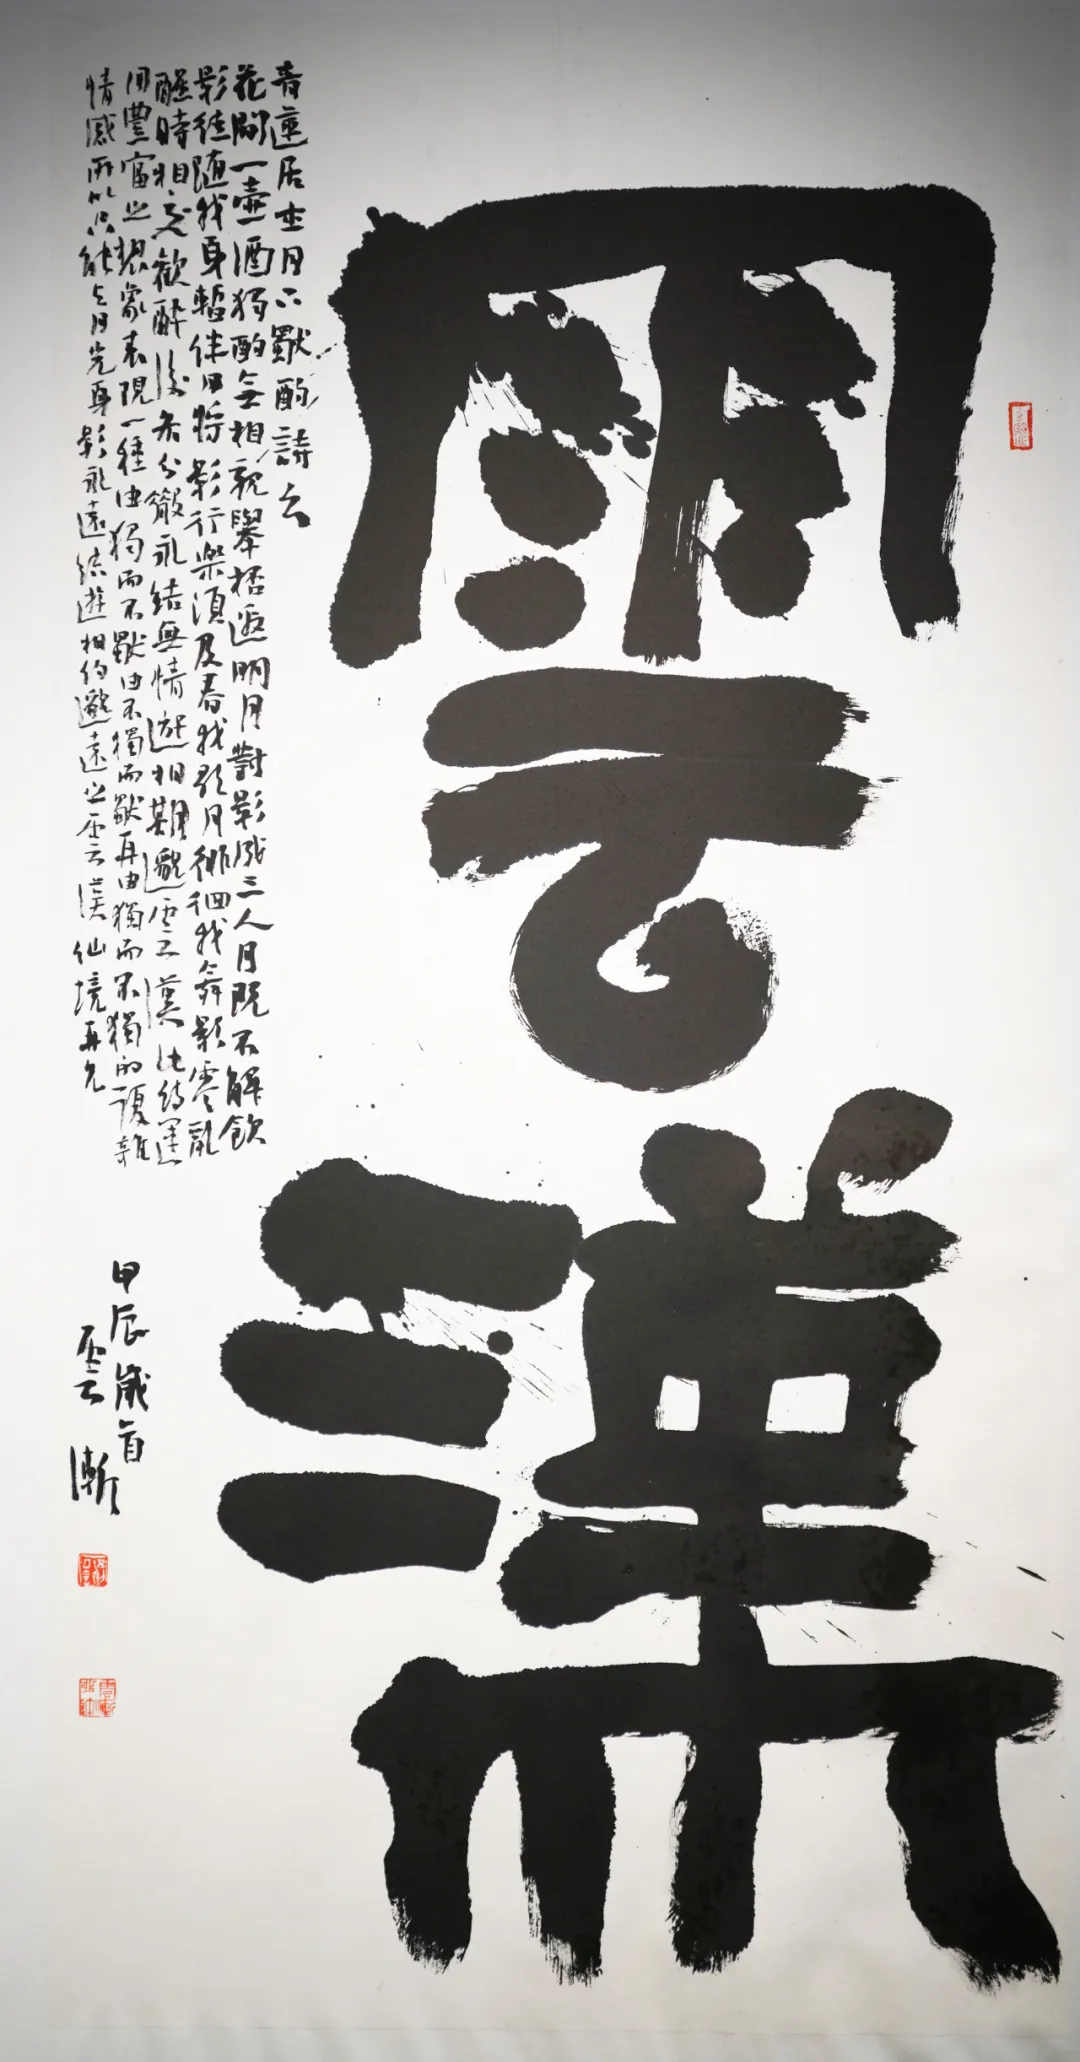 雲漢
青蓮居士月下獨酌詩云
花間一壺酒獨酌無相親舉杯邀明月對影成三人月既不解飲
影徒隨我身暫伴月將影行樂須及春我歌月徘徊我舞影零亂
醒時相交歡醉後各分散永結無情遊相期邈雲漢此詩運
用豐富之想象表現一種由獨而不獨由不獨而獨再由獨而不獨的複雜
情感所以只能與月光身影永遠結遊相約邈遠之雲漢仙境再
甲辰歲首
雲漸